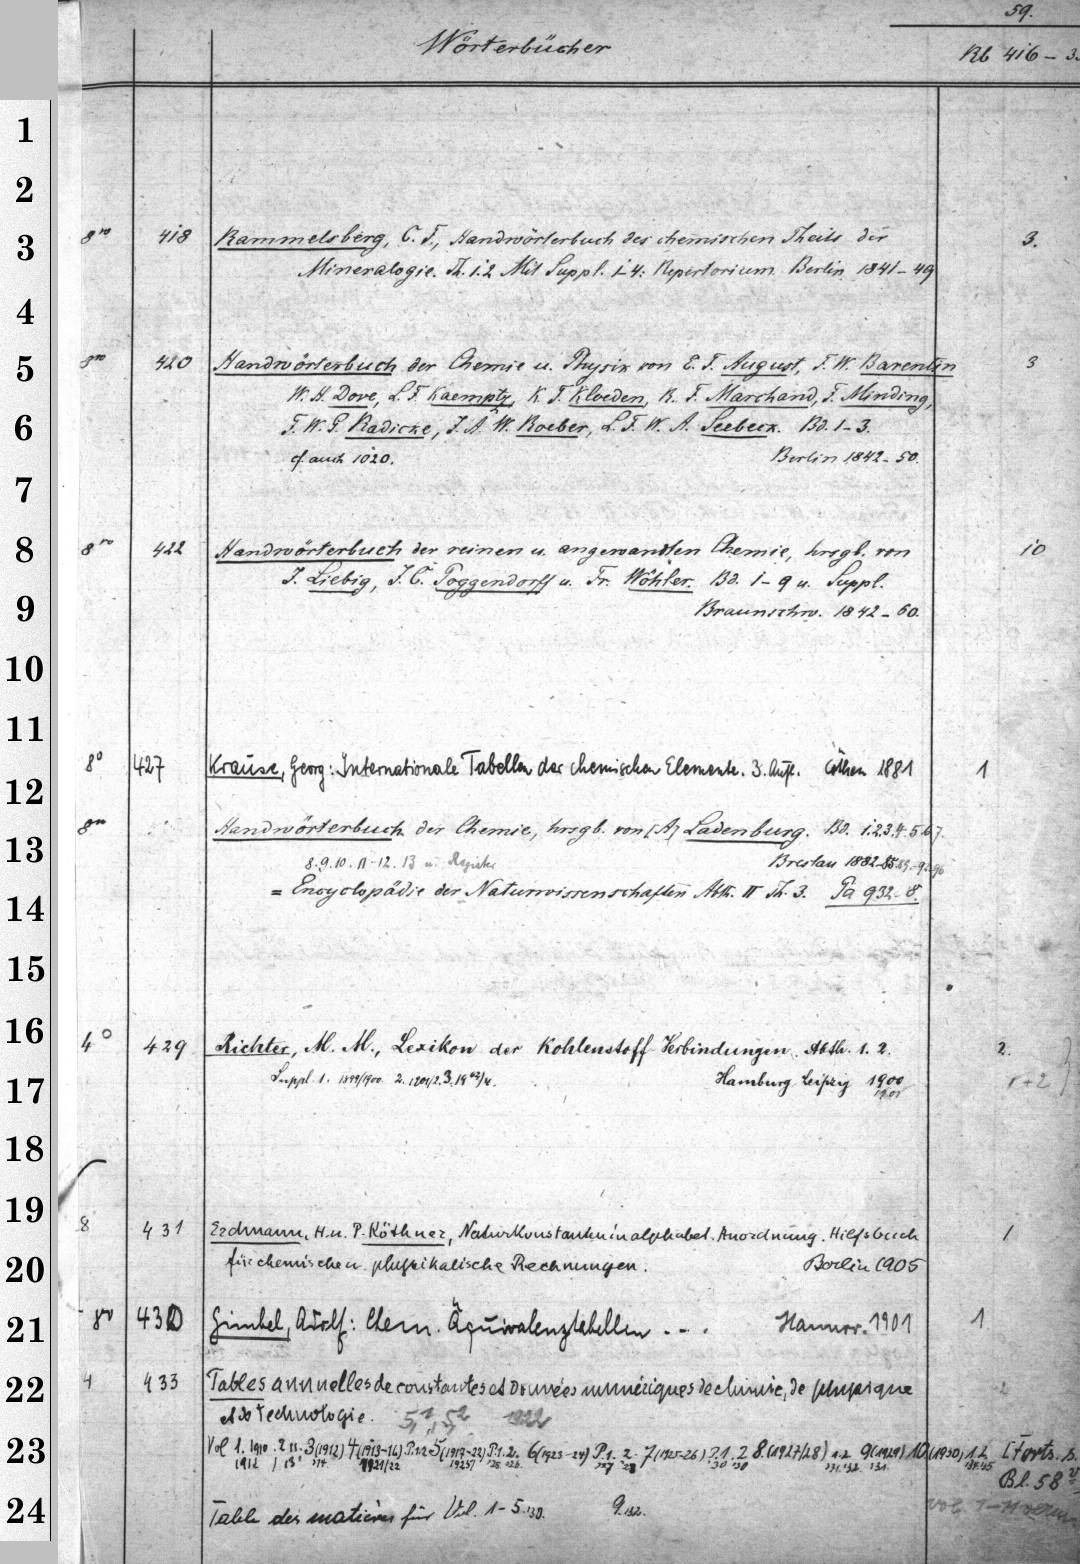 59.
Wörterbücher
Rb 416 - 3
1
2
3 8vo 418 Rammelsberg, C. F., Handwörterbuch des chemischen Theils der 3.
Mineralogie. Th. 1.2 Mit Suppl. 1-4: Repertorium. Berlin 1841-49
4
5 8vo 420 Handwörterbuch der Chemie u. Physik von E. F. August, F. W. Barentin 3
W. H. Dove, L. F. Kaemptz, K. F. Kloeden, R. F. Marchand, F. Minding,
6 F. W. G. Radicke, J. A. W. Roeber, L. F. W. A. Seebeck. Bd. 1-3.
cf. auch 1020. Berlin 1842-50.
7
8 8vo 422 Handwörterbuch der reinen u. angewandten Chemie, hrsgb. von 10
J. Liebig, J. C. Poggendorff u. Fr. Wöhler. Bd. 1-9 u. Suppl.
9 Braunschw. 1842-60.
10
11
8° 427 Krause, Georg: Internationale Tabellen der chemischen Elemente. 3. Aufl. Cöthen 1881 1
12
8vo Handwörterbuch der Chemie, hrsgb. von [A] Ladenburg. Bd. 1.2.3.4.5.6.7.
13 8.9.10.11-12. 13 u. Register Breslau 1882-85
= Encyclopädie der Naturwissenschaften Abth. II Th. 3. Pa 932-8.
14
15
16 4° 429 Richter, M. M., Lexikon der Kohlenstoff-Verbindungen. Abth. 1. 2. 2.
17 Suppl. 1. 1899/1900 2. 1901/2. 3. 1903/4. Hamburg Leipzig 1900 1+2
1901
18
19
8 431 Erdmann, H. u. P. Köthner, Naturkonstanten in alphabet. Anordnung. Hilfsbuch 1
20 für chemische u. physikalische Rechnungen. Berlin 1905
21 8vo 432 Gimbel, Adolf: Chem. Äquivalenztabellen . - . Hannov. 1901 1
22 4 433 Tables annuelles de constantes et données numériques de chimie, de physique 2
et de Technologie. 5,1, 5,2 1922
23 Vol 1. 1910 2 11. 3 (1912) 4 (1913-16) P.1.2. 5 (1917-22) P.1.2. 6 (1923-24) P.1. 2. 7 (1925-26) P.1. 2 8 (1927/28) 1.2. 9 (1929) 10 (1930) 1.2. [Forts. s.
Bl. 58v
24 Table des matières für Vol. 1-5. '30. 9. '32.